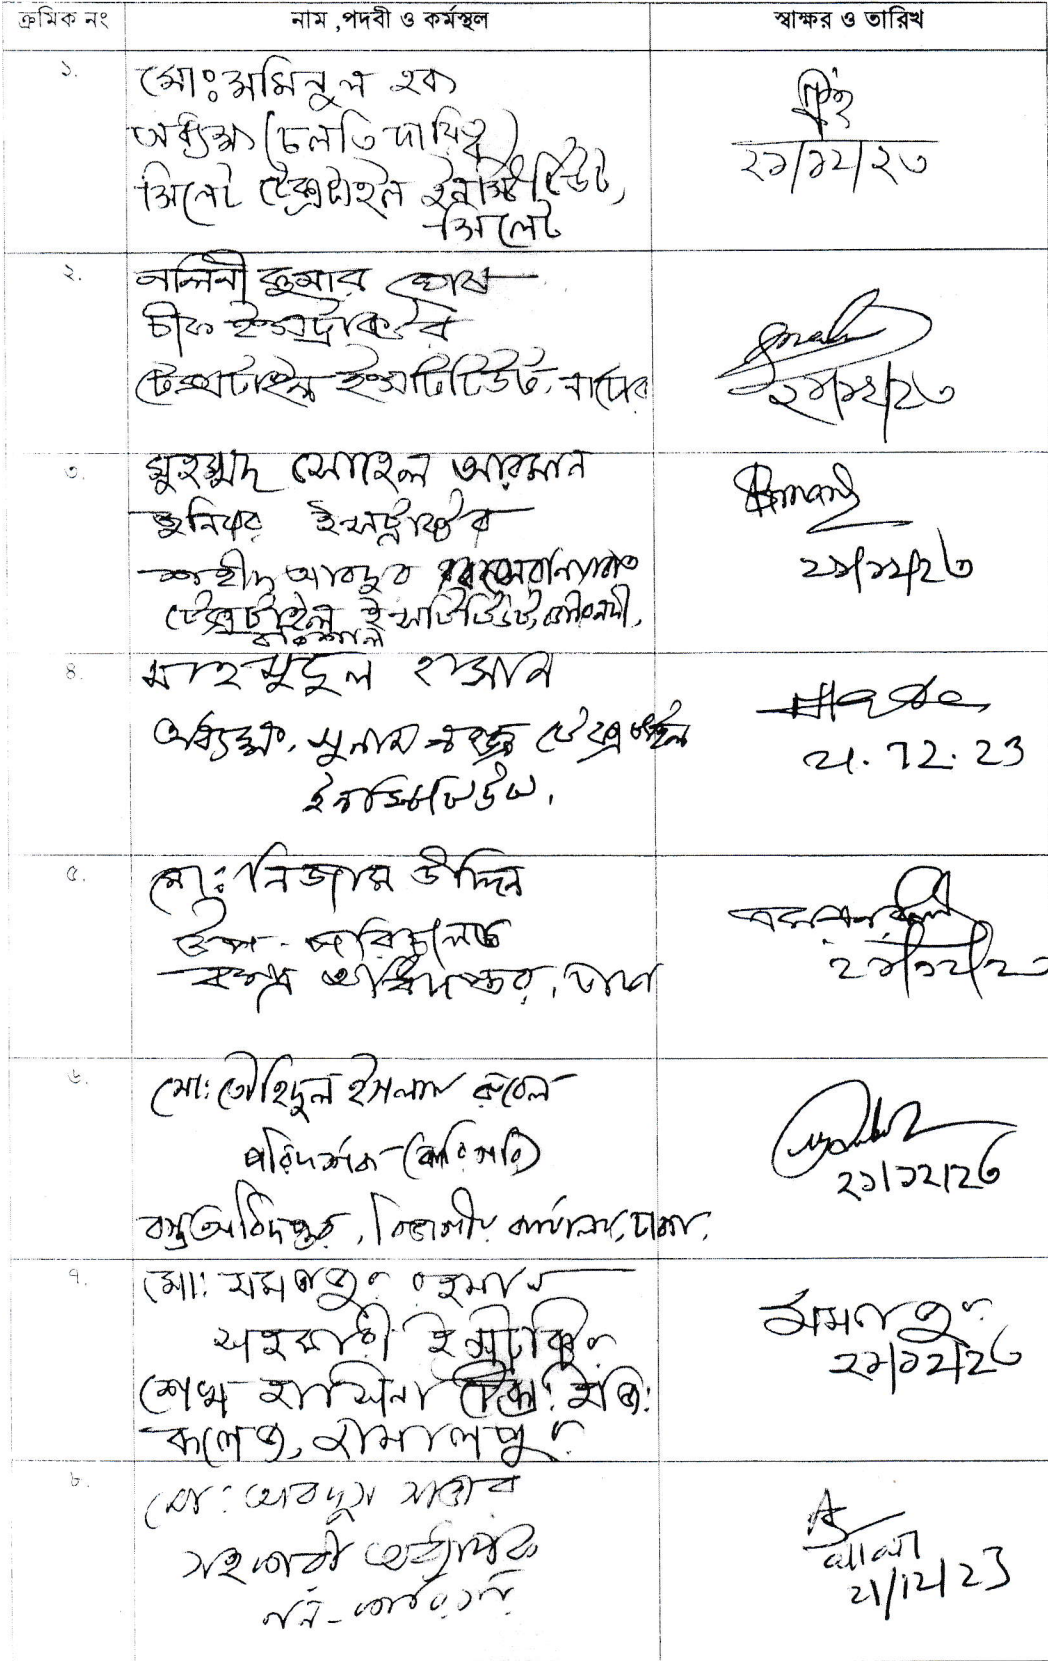 ক্রমিক নং নাম ,পদবী ও কর্মস্থল স্বাক্ষর ও তারিখ
১.
মোঃ মমিনুল হক
অধ্যক্ষ (চলতি দায়িত্ব)
সিলেট টেক্সটাইল ইনস্টিটিউট,
সিলেট
২১/১২/২৩
২.
নলিনী কুমার
চীফ ইন্সট্রাক্টর
টেক্সটাইল ইন্সটিটিউট, নাটোর
২১/১২/২৩
৩.
মুহম্মদ সোহেল আরমান
জুনিয়র ইন্সট্রাক্টর
শহীদ আবদুর রব সেরনিয়াবাত
টেক্সটাইল ইন্সটিটিউট, গৌরনদী,
বরিশাল
২১/১২/২৩
৪.
মাহমুদুল হাসান
অধ্যক্ষ, টেক্সটাইল
ইনস্টিটিউট.
21.12.23
৫.
মো: নিজাম উদ্দিন
উপ-পরিচালক
বস্ত্র অধিদপ্তর, ঢাকা
২১/১২/২৩
৬.
মো: তৌহিদুল ইসলাম রুবেল
পরিদর্শক (কারিগরি)
বস্ত্র অধিদপ্তর, বিভাগীয় কার্যালয়, ঢাকা.
২১/১২/২৩
৭.
মো: রহমান
সহকারী ইন্সট্রাক্টর
শেখ হাসিনা টেক্স: ইঞ্জি:
কলেজ, জামালপুর
২১/১২/২৩
৮.
মো: আবদুস সাত্তার
সহকারী অধ্যাপক
নন-
21/12/23